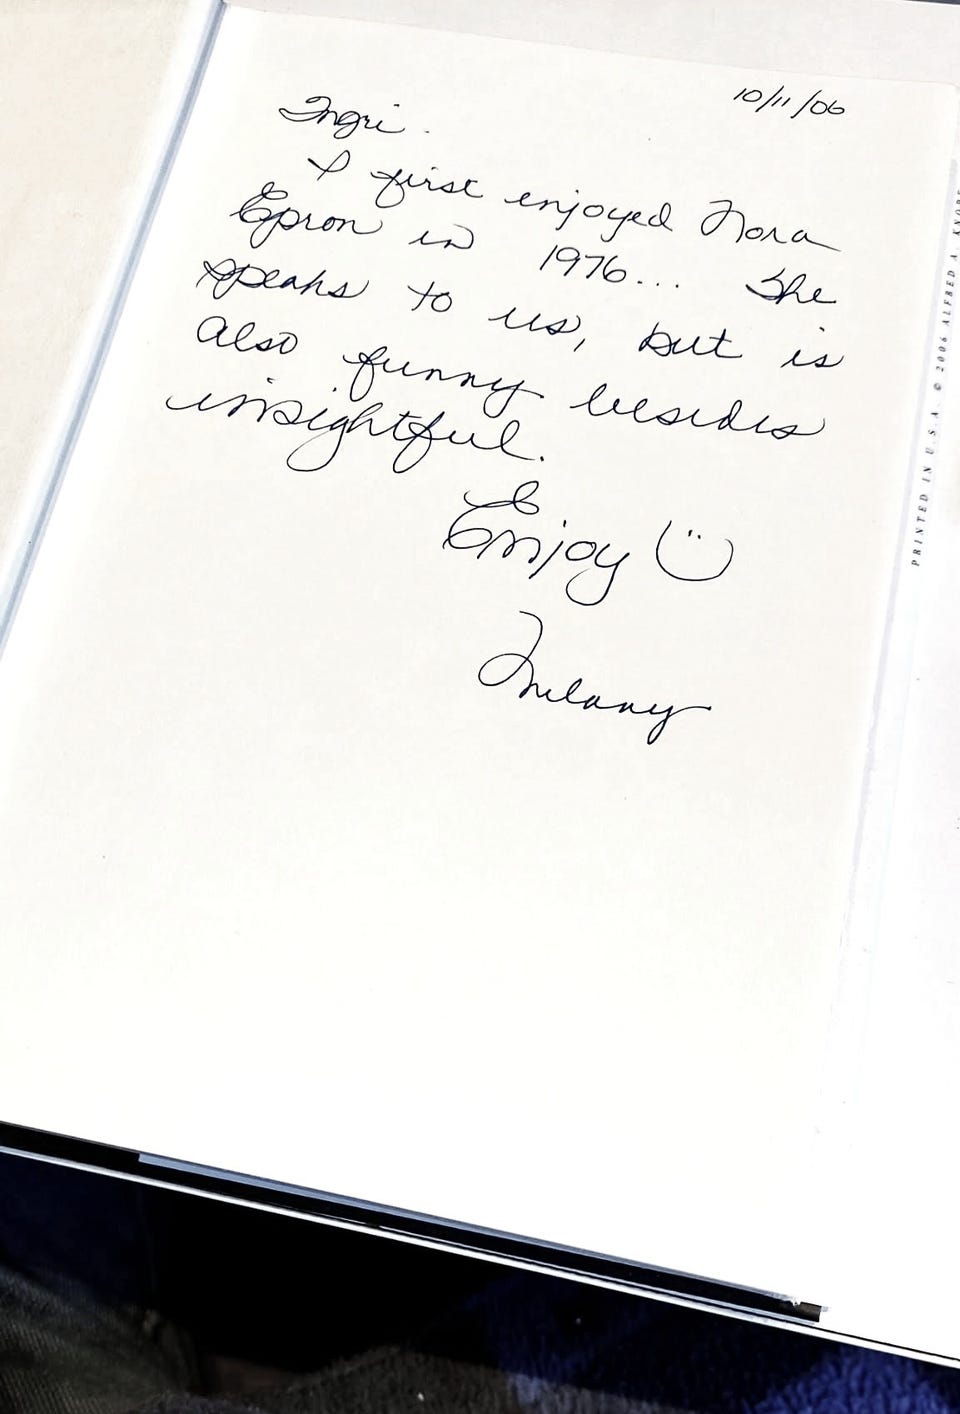 10/11/06
Ingri.
I first enjoyed Nora
Epron in 1976... She
speaks to us, but is
also funny besides
insightful.
Enjoy
Melany
PRINTED IN U.S.A. © 2006 ALFRED A. KNOPF